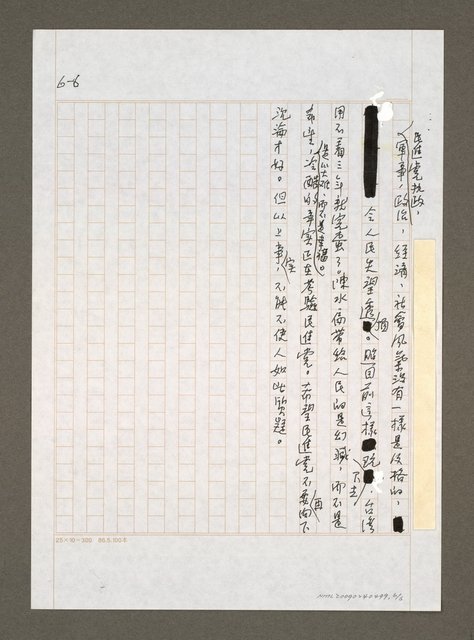 6-6
民進黨執政,
軍事,政治,經濟,社會風氣沒有一樣是及格的,
令人民失望透頂。照目前這樣玩下去,台灣
用不著三年就完蛋了。陳水扁帶給人民的是幻滅,而不是
希望,而不是幸福。冷酷的事實正在考驗民進黨。希望民進黨不要再向下
沉淪才好。但以上事實,不能不使人如此質疑。
25×10=300 86.5.100本